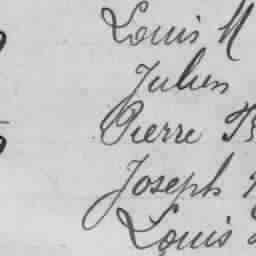 Louis N
Julien
Pierre B
Joseph
Louis